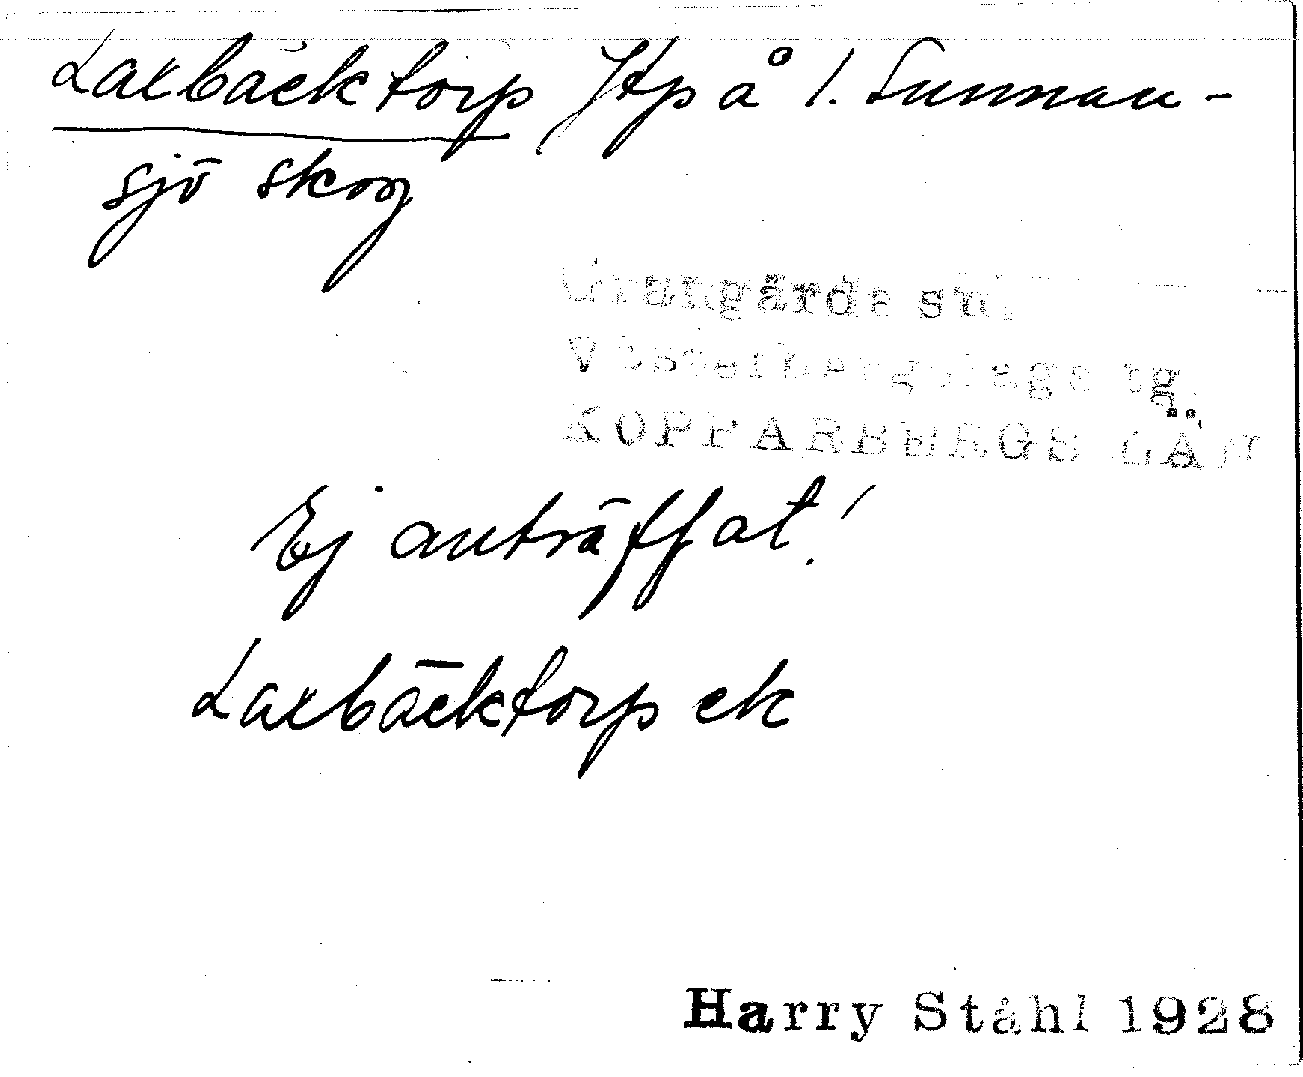 Laxbäcktorp Jtp å l. Sunnan-
sjö skog
Grangärde sn.
Västerbergslags tg.
KOPPARBERGS LÄN
Ej anträffat!
Laxbäcktorp ek
Harry Ståhl 1928